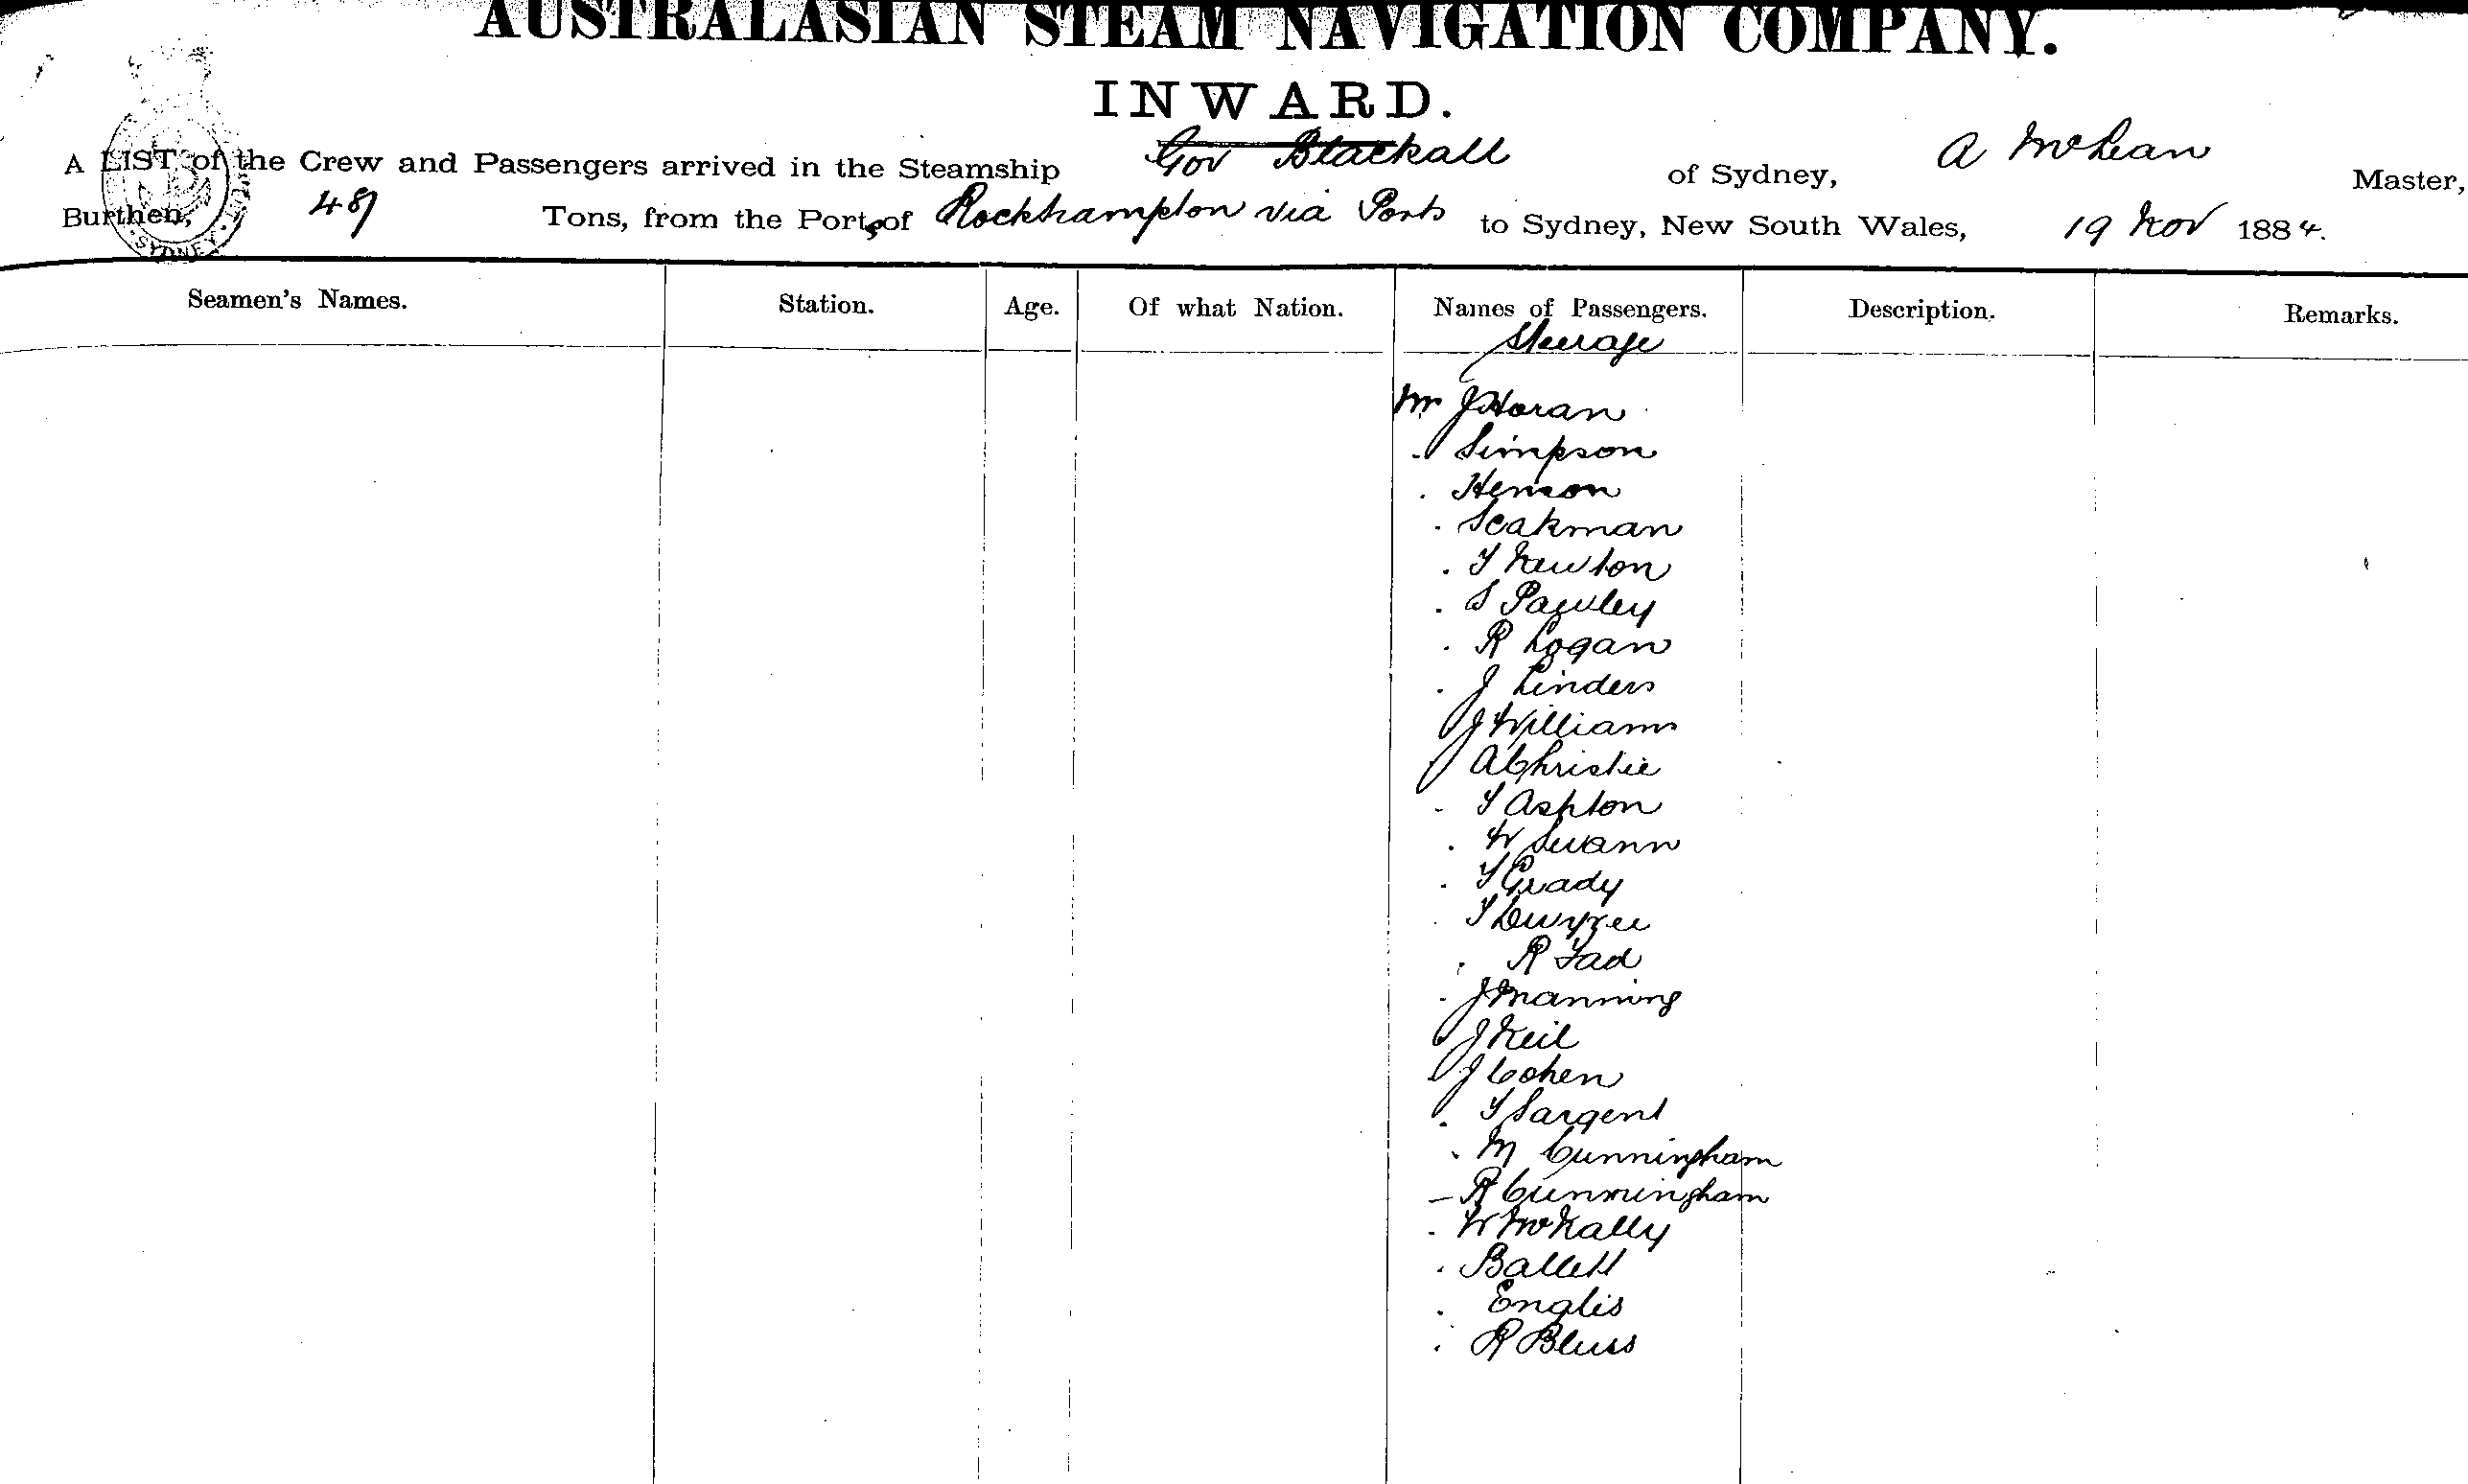 AUSTRALASIAN STEAM NAVIGATION COMPANY.
INWARD.
A LIST of the Crew and Passengers arrived in the Steamship Gov Blackall of Sydney, A McLean Master,
Burthen, 487 Tons, from the Ports of Rockhampton via Ports to Sydney, New South Wales, 19 Nov 1884.
Seamen's Names. Station. Age. Of what Nation. Names of Passengers. Description. Remarks.
Steerage
Mr J Horan
Simpson
Henson
Seakman
T Newton
S Pawley
R Logan
J Linders
J Williams
A Christie
T Ashton
W Swann
T Grady
R Fad
J Manning
J Neil
J Cohen
T Sargent
M Cunningham
R Cunningham
W McNally
Ballett
Englis
R Bluss
SYDNEY